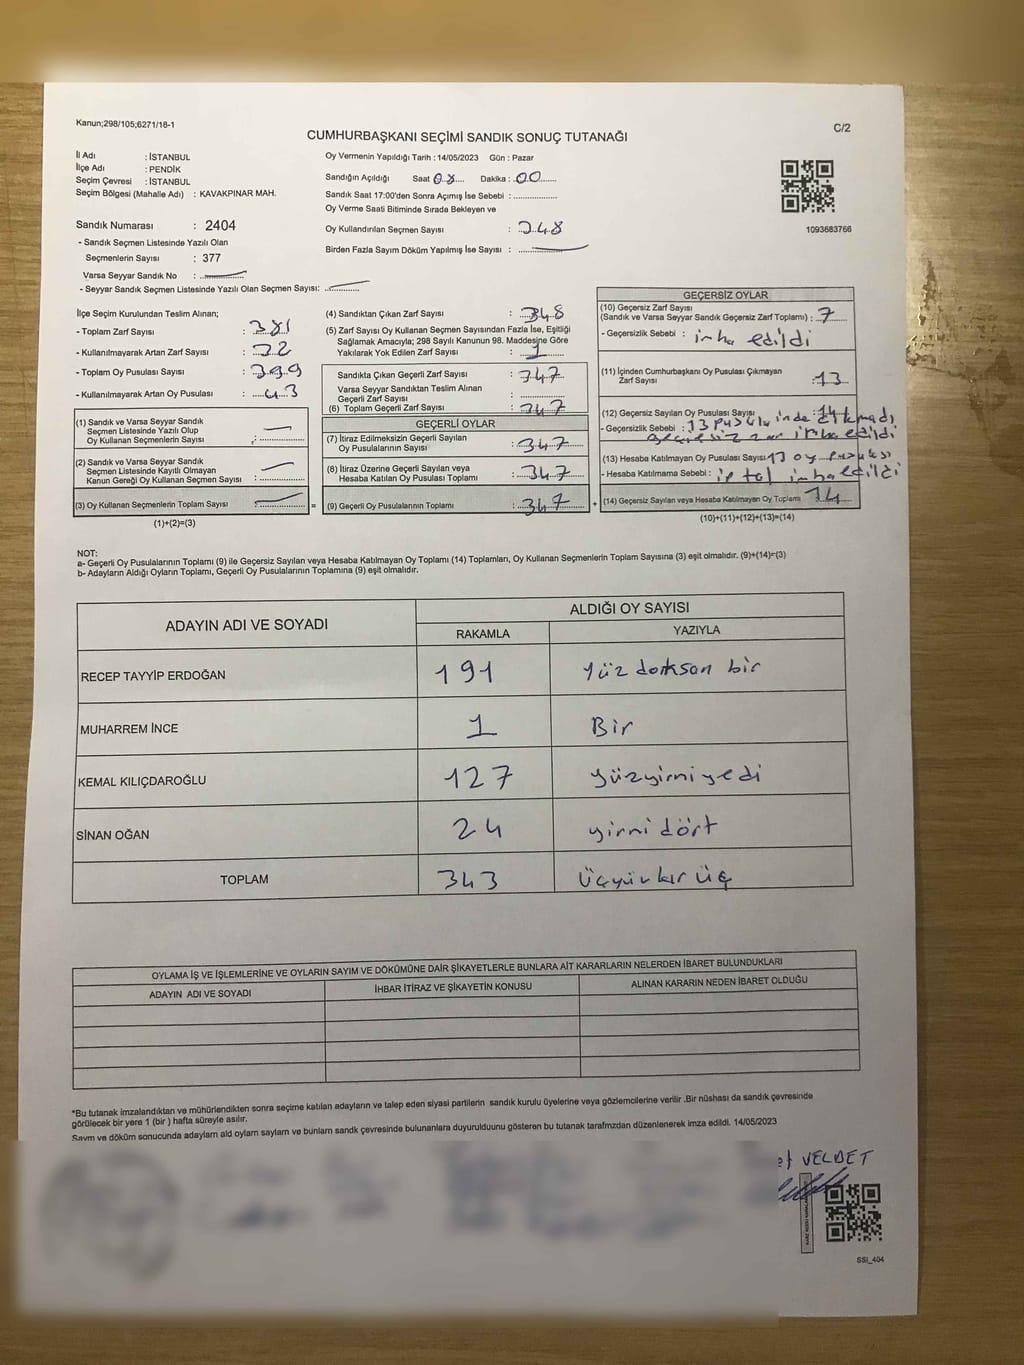 Kanun;298/105;6271/18-1
C/2
CUMHURBAŞKANI SEÇİMİ SANDIK SONUÇ TUTANAĞI
İl Adı : İSTANBUL
İlçe Adı : PENDİK
Seçim Çevresi : İSTANBUL
Seçim Bölgesi (Mahalle Adı) : KAVAKPINAR MAH.
Sandık Numarası : 2404
- Sandık Seçmen Listesinde Yazılı Olan
Seçmenlerin Sayısı : 377
Varsa Seyyar Sandık No :
- Seyyar Sandık Seçmen Listesinde Yazılı Olan Seçmen Sayısı:
Oy Vermenin Yapıldığı Tarih : 14/05/2023 Gün : Pazar
Sandığın Açıldığı Saat 08 Dakika : 00
Sandık Saat 17:00'den Sonra Açımış İse Sebebi :
Oy Verme Saati Bitiminde Sırada Bekleyen ve
Oy Kullandırılan Seçmen Sayısı : 348
Birden Fazla Sayım Döküm Yapılmış İse Sayısı :
1093683766
İlçe Seçim Kurulundan Teslim Alınan;
- Toplam Zarf Sayısı : 381
- Kullanılmayarak Artan Zarf Sayısı : 32
- Toplam Oy Pusulası Sayısı : 399
- Kullanılmayarak Artan Oy Pusulası : 43
(1) Sandık ve Varsa Seyyar Sandık
Seçmen Listesinde Yazılı Olup
Oy Kullanan Seçmenlerin Sayısı :
(2) Sandık ve Varsa Seyyar Sandık
Seçmen Listesinde Kayıtlı Olmayan
Kanun Gereği Oy Kullanan Seçmen Sayısı :
(3) Oy Kullanan Seçmenlerin Toplam Sayısı
(1)+(2)=(3)
(4) Sandıktan Çıkan Zarf Sayısı : 348
(5) Zarf Sayısı Oy Kullanan Seçmen Sayısından Fazla İse, Eşitliği
Sağlamak Amacıyla; 298 Sayılı Kanunun 98. Maddesine Göre
Yakılarak Yok Edilen Zarf Sayısı : 1
Sandıkta Çıkan Geçerli Zarf Sayısı : 347
Varsa Seyyar Sandıktan Teslim Alınan
Geçerli Zarf Sayısı :
(6) Toplam Geçerli Zarf Sayısı : 347
GEÇERLİ OYLAR
(7) İtiraz Edilmeksizin Geçerli Sayılan
Oy Pusulalarının Sayısı : 347
(8) İtiraz Üzerine Geçerli Sayılan veya
Hesaba Katılan Oy Pusulası Toplamı : 347
= (9) Geçerli Oy Pusulalarının Toplamı : 347 +
GEÇERSİZ OYLAR
(10) Geçersiz Zarf Sayısı
(Sandık ve Varsa Seyyar Sandık Geçersiz Zarf Toplamı) : 7
- Geçersizlik Sebebi : imha edildi
(11) İçinden Cumhurbaşkanı Oy Pusulası Çıkmayan
Zarf Sayısı : 13
(12) Geçersiz Sayılan Oy Pusulası Sayısı : 14
- Geçersizlik Sebebi : 13 inde çıkmadı
imha edildi
(13) Hesaba Katılmayan Oy Pusulası Sayısı 13 oy pusulası
- Hesaba Katılmama Sebebi : iptal imha edildi
(14) Geçersiz Sayılan veya Hesaba Katılmayan Oy Toplamı 14
(10)+(11)+(12)+(13)=(14)
NOT:
a- Geçerli Oy Pusulalarının Toplamı (9) ile Geçersiz Sayılan veya Hesaba Katılmayan Oy Toplamı (14) Toplamları, Oy Kullanan Seçmenlerin Toplam Sayısına (3) eşit olmalıdır. (9)+(14)=(3)
b- Adayların Aldığı Oyların Toplamı, Geçerli Oy Pusulalarının Toplamına (9) eşit olmalıdır.
ADAYIN ADI VE SOYADI
ALDIĞI OY SAYISI
RAKAMLA YAZIYLA
RECEP TAYYİP ERDOĞAN 191 yüz dorksan bir
MUHARREM İNCE 1 Bir
KEMAL KILIÇDAROĞLU 127 yüzyirmiyedi
SİNAN OĞAN 24 yirmi dört
TOPLAM 343 Üçyüz kır üç
OYLAMA İŞ VE İŞLEMLERİNE VE OYLARIN SAYIM VE DÖKÜMÜNE DAİR ŞİKAYETLERLE BUNLARA AİT KARARLARIN NELERDEN İBARET BULUNDUKLARI
ADAYIN ADI VE SOYADI İHBAR İTİRAZ VE ŞİKAYETİN KONUSU ALINAN KARARIN NEDEN İBARET OLDUĞU
*Bu tutanak imzalandıktan ve mühürlendikten sonra seçime katılan adayların ve talep eden siyasi partilerin sandık kurulu üyelerine veya gözlemcilerine verilir .Bir nüshası da sandık çevresinde
görülecek bir yere 1 (bir ) hafta süreyle asılır.
Sayım ve döküm sonucunda adayların ald oyların sayları ve bunlarn sandk çevresinde bulunanlara duyurulduunu gösteren bu tutanak tarafmzdan düzenlenerek imza edildi. 14/05/2023
et VELDET
SSI_404